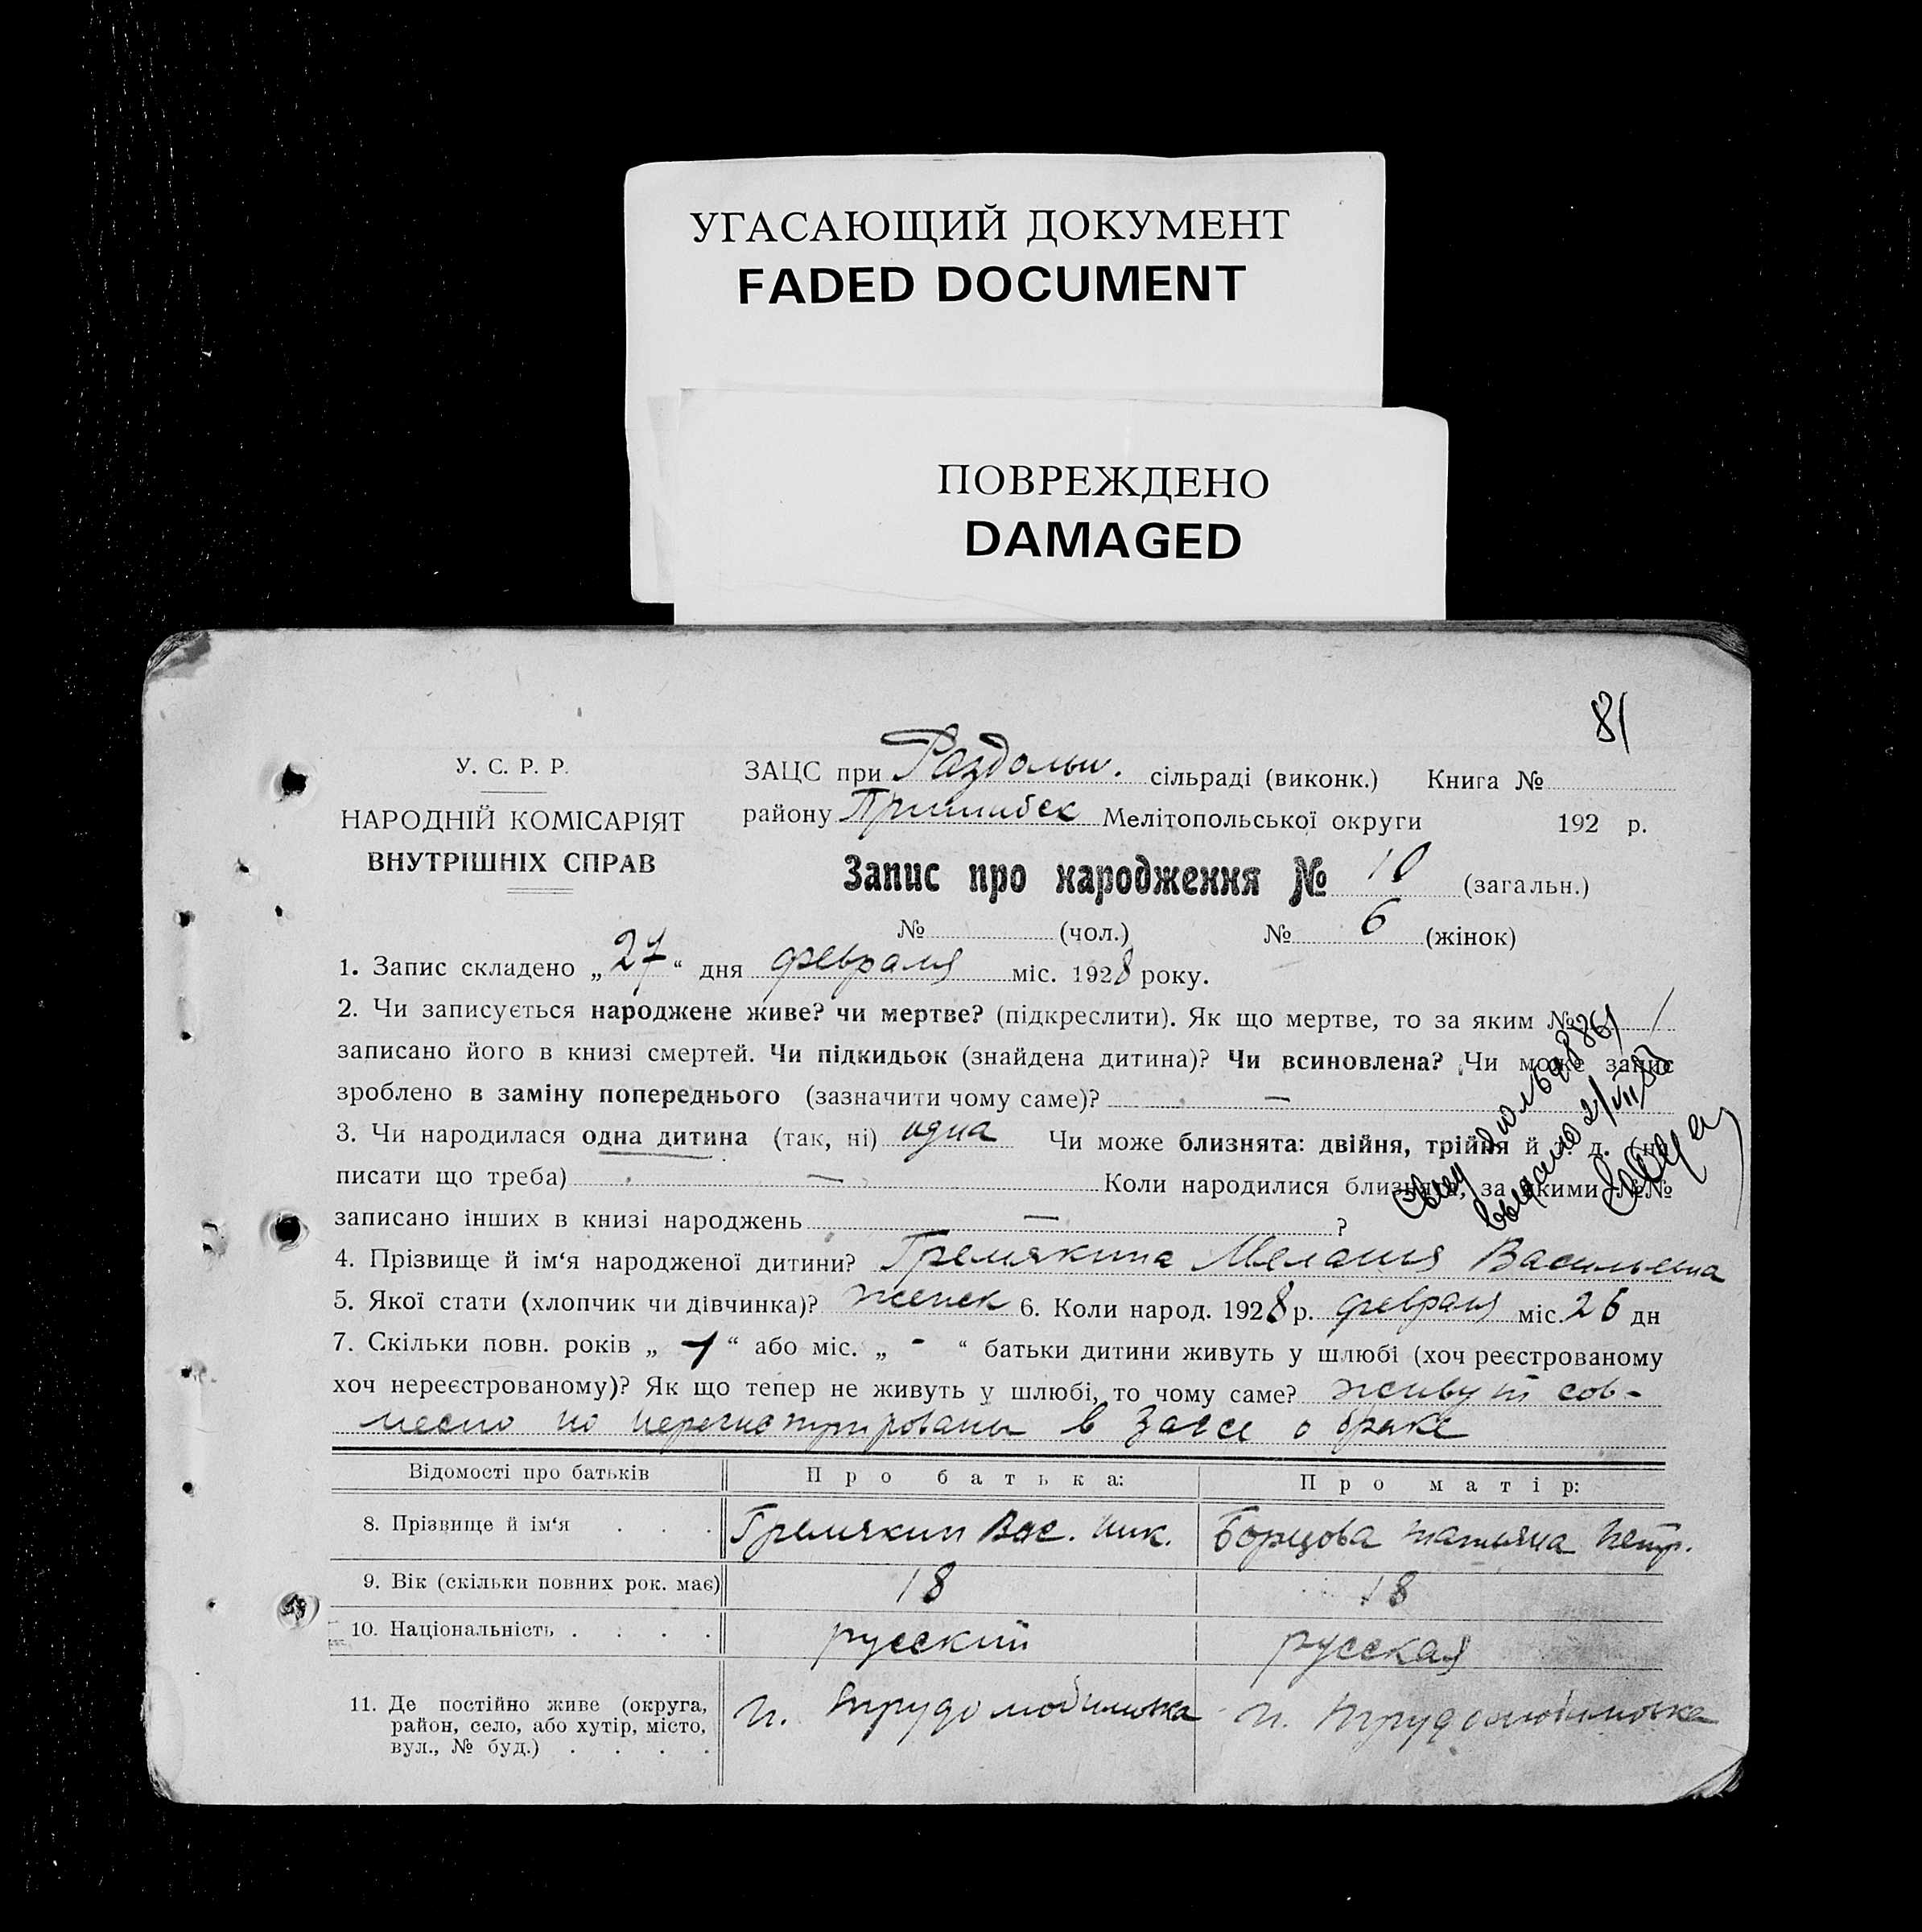 УГАСАЮЩИЙ ДОКУМЕНТ
FADED DOCUMENT
ПОВРЕЖДЕНО
DAMAGED
81
У. С. Р. Р.
НАРОДНІЙ КОМІСАРІЯТ
ВНУТРІШНІХ СПРАВ
ЗАЦС при Раздольн. сільраді (виконк.) Книга №
району Пришибск Мелітопольської округи 192 р.
Запис про народження № 10 (загальн.)
№ (чол.) № 6 (жінок)
1. Запис складено „27“ дня февраля міс. 1928 року.
2. Чи записується народжене живе? чи мертве? (підкреслити). Як що мертве, то за яким №
записано його в книзі смертей. Чи підкидьок (знайдена дитина)? Чи всиновлена? Чи може запис
зроблено в заміну попереднього (зазначити чому саме)? —
3. Чи народилася одна дитина (так, ні) одна Чи може близнята: двійня, трійня й т. д. (на-
писати що треба) — Коли народилися близнята, за якими №№
записано інших в книзі народжень — ?
4. Прізвище й ім‘я народженої дитини? Гремякина Мелания Васильевна
5. Якої стати (хлопчик чи дівчинка)? женск 6. Коли народ. 1928 р. февраля міс. 26 дн
7. Скільки повн. років „ 1 “ або міс. „ - “ батьки дитини живуть у шлюбі (хоч реєстрованому
хоч нереєстрованому)? Як що тепер не живуть у шлюбі, то чому саме? живут сов-
месно но в Загсе о браке
Відомості про батьків Про батька: Про матір:
8. Прізвище й ім‘я . . . Гремякин Вас. Ник. Борцова Татьяна Петр.
9. Вік (скільки повних рок. має) 18 18
10. Національність . . . . русский русская
11. Де постійно живе (округа, район, село, або хутір, місто, вул., № буд.) . . . . п. Трудолюбимовка п. Трудолюбимовка